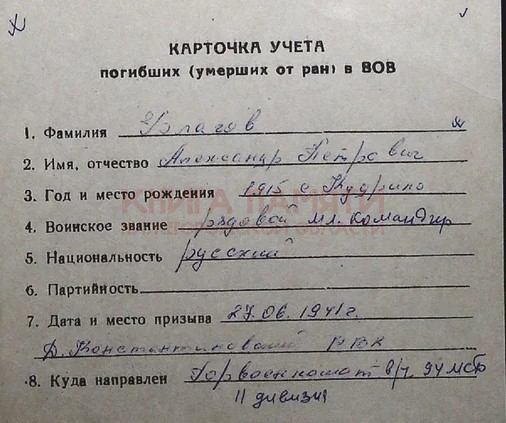 КАРТОЧКА УЧЕТА
погибших (умерших от ран) в ВОВ
1. Фамилия Урлагов
2. Имя, отчество Александр Петрович
3. Год и место рождения 1915 с Кудрино
КНИГА ПАМЯТИ
4. Воинское звание рядовой мл. командир
5. Национальность русский
6. Партийность
7. Дата и место призыва 27.06.1941г.
Д. Константиновский РВК
8. Куда направлен Горвоенкомат в/ч 94 МСБ
11 дивизия